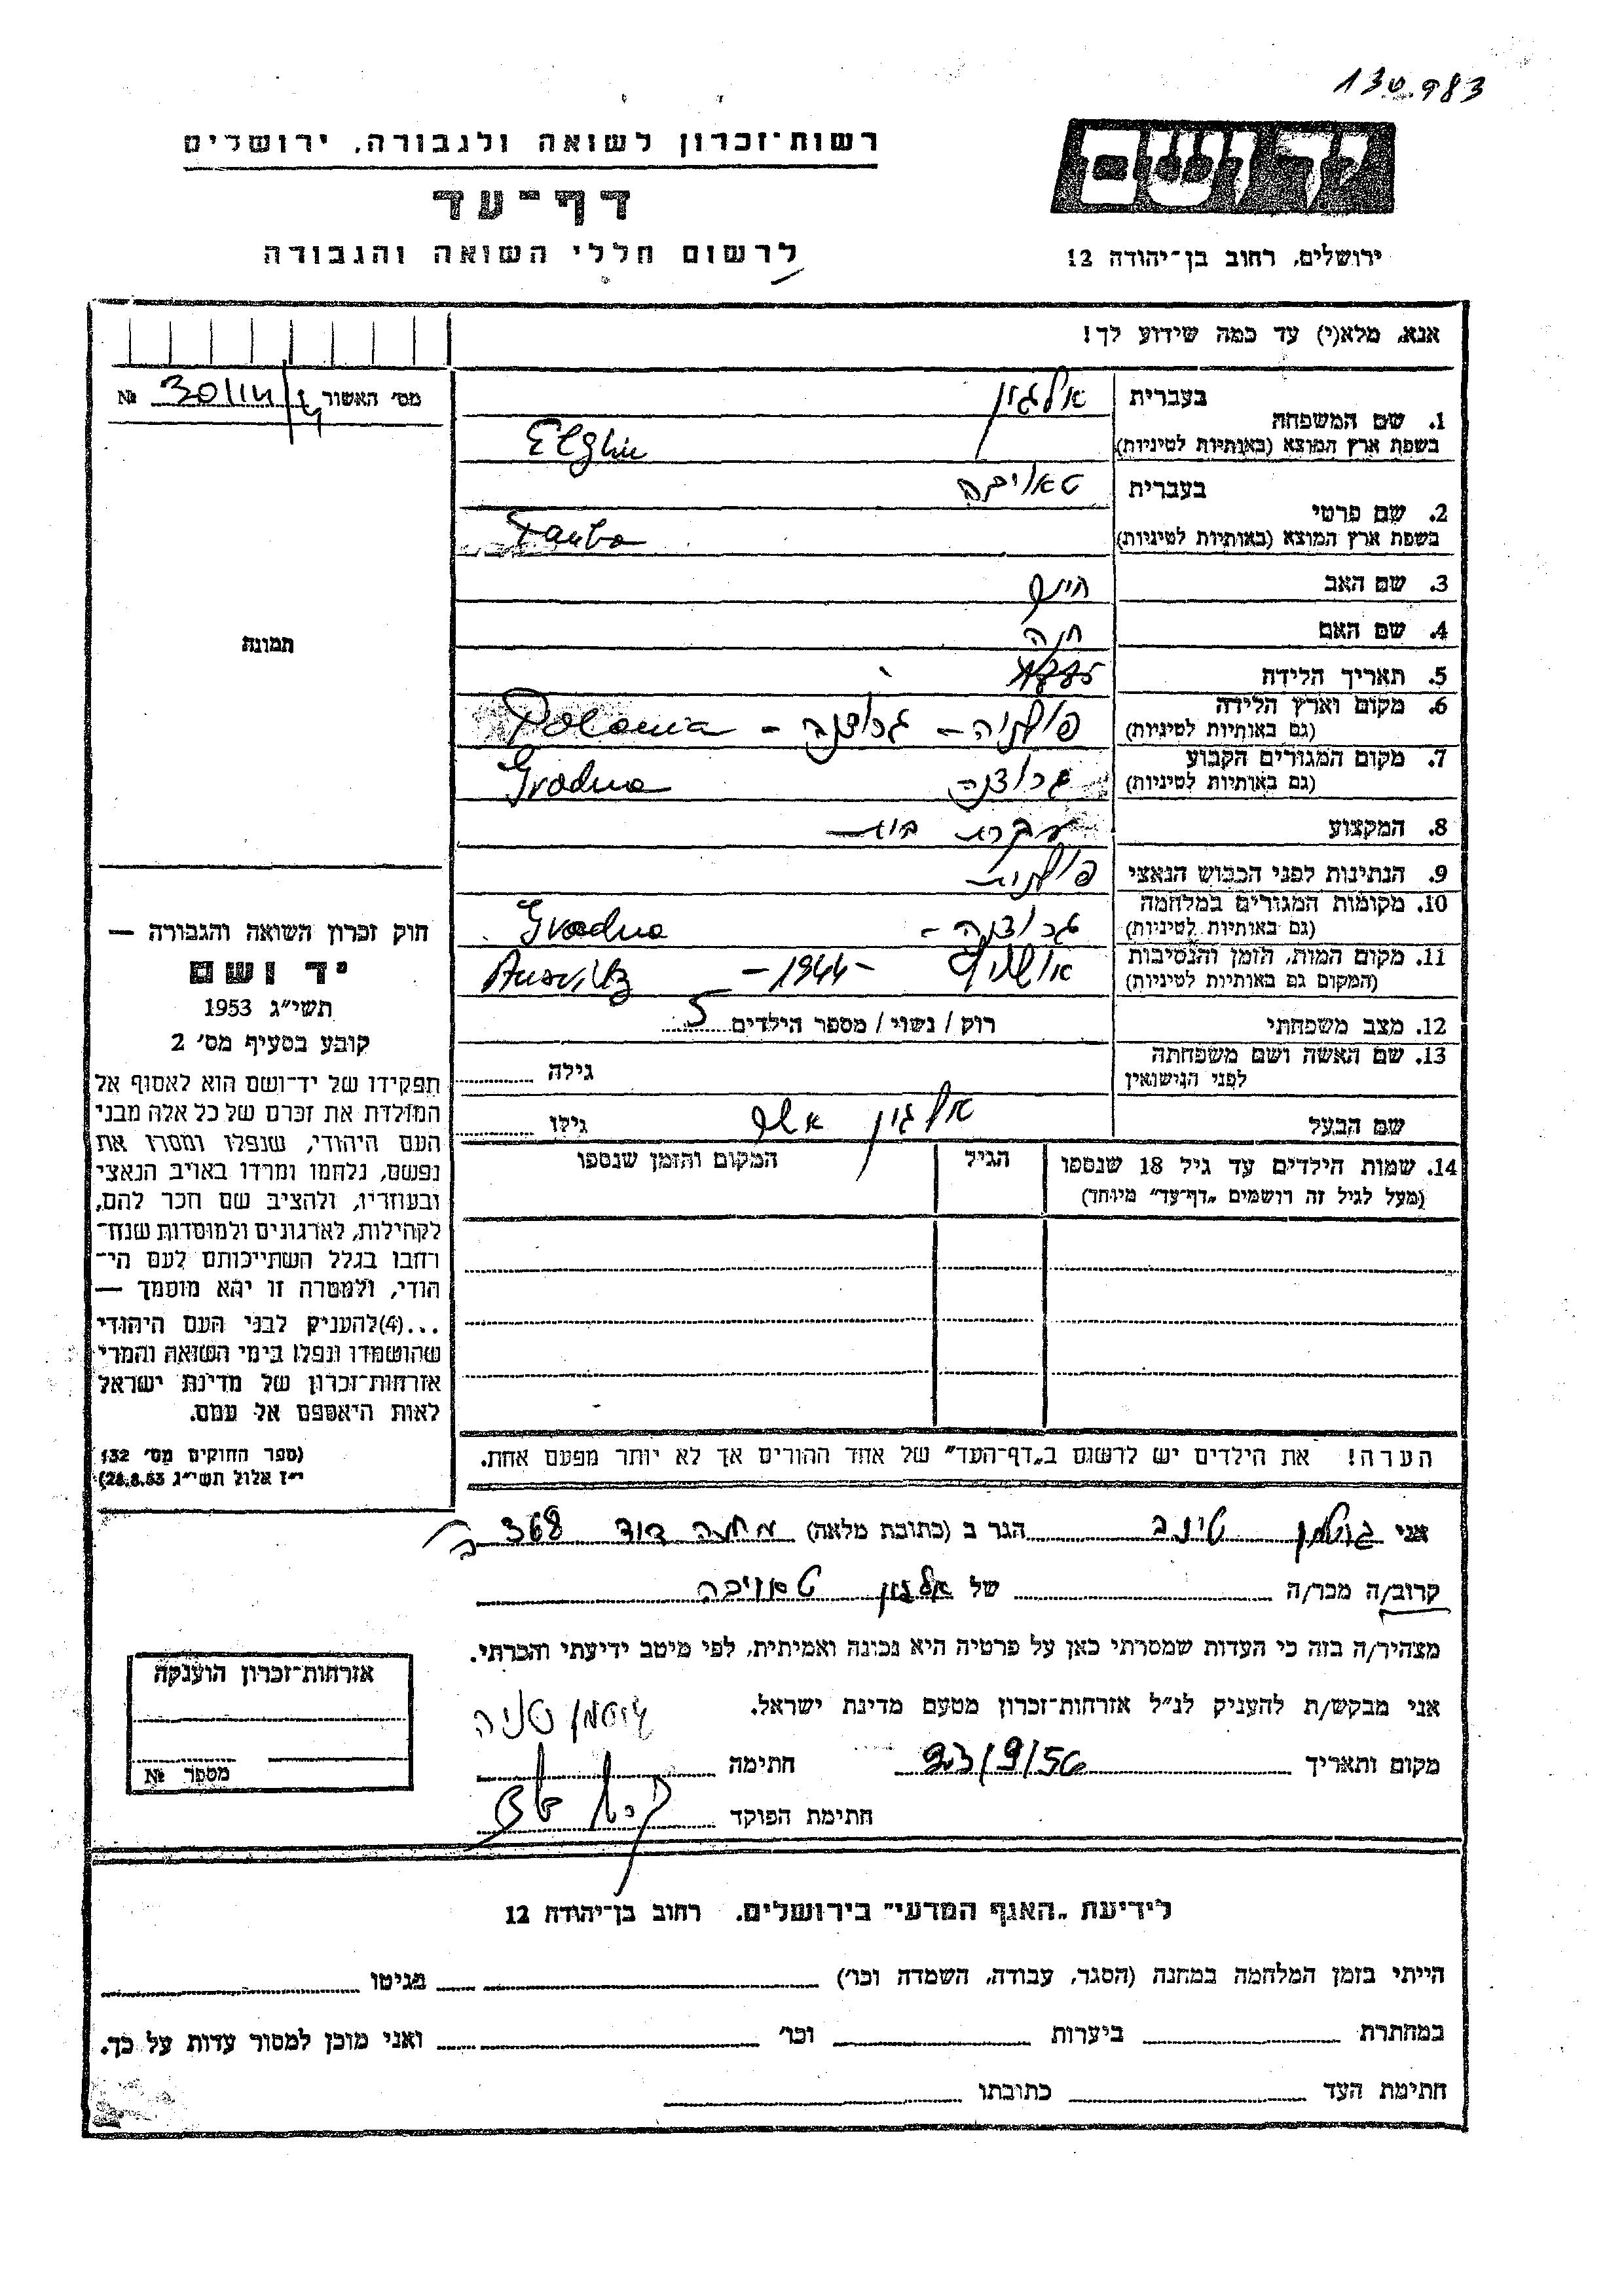 130.983
רשות־זכרון לשואה ולגבורה, ירושלים
דף־עד
לרשום חללי השואה והגבורה
יד ושם
ירושלים, רחוב בן־יהודה 12
אנא, מלא(י) עד כמה שידוע לך!
מס׳ האשור №
1. שם המשפחה
בעברית אלגין
בשפת ארץ המוצא (באותיות לטיניות) Elghin
2. שם פרטי
בעברית טאויבה
בשפת ארץ המוצא (באותיות לטיניות) Tauba
3. שם האב
4. שם האם חנה
5. תאריך הלידה
6. מקום וארץ הלידה
(גם באותיות לטיניות) פולניה – גרודנה – Polonia
7. מקום המגורים הקבוע
(גם באותיות לטיניות) גרודנה Grodno
8. המקצוע עקרת בית
9. הנתינות לפני הכבוש הנאצי פולנית
10. מקומות המגורים במלחמה
(גם באותיות לטיניות) גרודנה – Grodno
11. מקום המות, הזמן והנסיבות
(המקום גם באותיות לטיניות) אושויץ – 1944 – Ausvitz
12. מצב משפחתי רוק / נשוי / מספר הילדים 5
13. שם האשה ושם משפחתה
לפני הנישואין גילה
שם הבעל אלגין אשר גילו
14. שמות הילדים עד גיל 18 שנספו
(מעל לגיל זה רושמים „דף־עד״ מיוחד)
הגיל
המקום והזמן שנספו
הערה! את הילדים יש לרשום ב„דף־העד״ של אחד ההורים אך לא יותר מפעם אחת.
תמונה
חוק זכרון השואה והגבורה —
יד ושם
תשי״ג 1953
קובע בסעיף מס׳ 2
תפקידו של יד־ושם הוא לאסוף אל
המולדת את זכרם של כל אלה מבני
העם היהודי, שנפלו ומסרו את
נפשם, נלחמו ומרדו באויב הנאצי
ובעוזריו, ולהציב שם וזכר להם,
לקהילות, לארגונים ולמוסדות שנח־
רבו בגלל השתייכותם לעם הי־
הודי, ולמטרה זו יהא מוסמך —
...(4) להעניק לבני העם היהודי
שהושמדו ונפלו בימי השואה והמרי
אזרחות־זכרון של מדינת ישראל
לאות היאספם אל עמם.
(ספר החוקים מס׳ 132
י״ז אלול תשי״ג 28.8.53)
אני גוטמן טינה הגר ב (כתובת מלאה) מחנה דוד 368
קרוב/ה מכר/ה של אלגין טאויבה
מצהיר/ה בזה כי העדות שמסרתי כאן על פרטיה היא נכונה ואמיתית, לפי מיטב ידיעתי והכרתי.
אני מבקש/ת להעניק לנ״ל אזרחות־זכרון מטעם מדינת ישראל.
מקום ותאריך 23/9/56 חתימה
חתימת הפוקד
אזרחות־זכרון הוענקה
מספר №
לידיעת „האגף המדעי״ בירושלים, רחוב בן־יהודה 12
הייתי בזמן המלחמה במחנה (הסגר, עבודה, השמדה וכו׳) בגיטו
במחתרת ביערות וכו׳ ואני מוכן למסור עדות על כך.
חתימת העד כתובתו